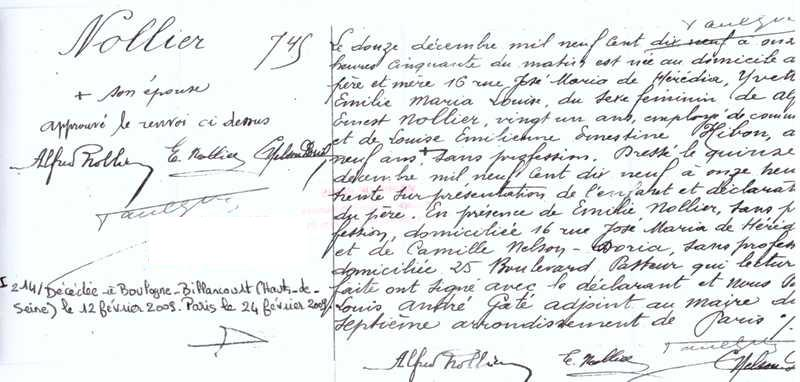 Nollier 745
+ son épouse
approuvé le renvoi ci dessus
Alfred Nollier E. Nollier C Nelson Doria
214/ Décédée à Boulogne-Billancourt (Hauts-de-
Seine) le 12 février 2008. Paris le 24 février 2008
Le douze décembre mil neuf cent dix neuf à onze
heures cinquante du matin est née au domicile
père et mère 16 rue José Maria de Hérédia, Yvette
Emilie Maria Louise, du sexe féminin de
Ernest Nollier, vingt un ans, employé de comm
et de Louise Emilienne Ernestine Hibon,
neuf ans + sans profession. Dressé le quinze
décembre mil neuf cent dix neuf à onze heu
trente sur présentation de l'enfant et déclarat
du père. En présence de Emilie Nollier, sans p
fession, domiciliée 16 rue José Maria de Hérédi
et de Camille Nelson-Doria, sans profes
domiciliée 25 Boulevard Pasteur qui lectur
faite ont signé avec le déclarant et Nous
Louis André Gaté adjoint au maire du
Septième arrondissement de Paris ./.
Alfred Nollier E. Nollier C Nelson